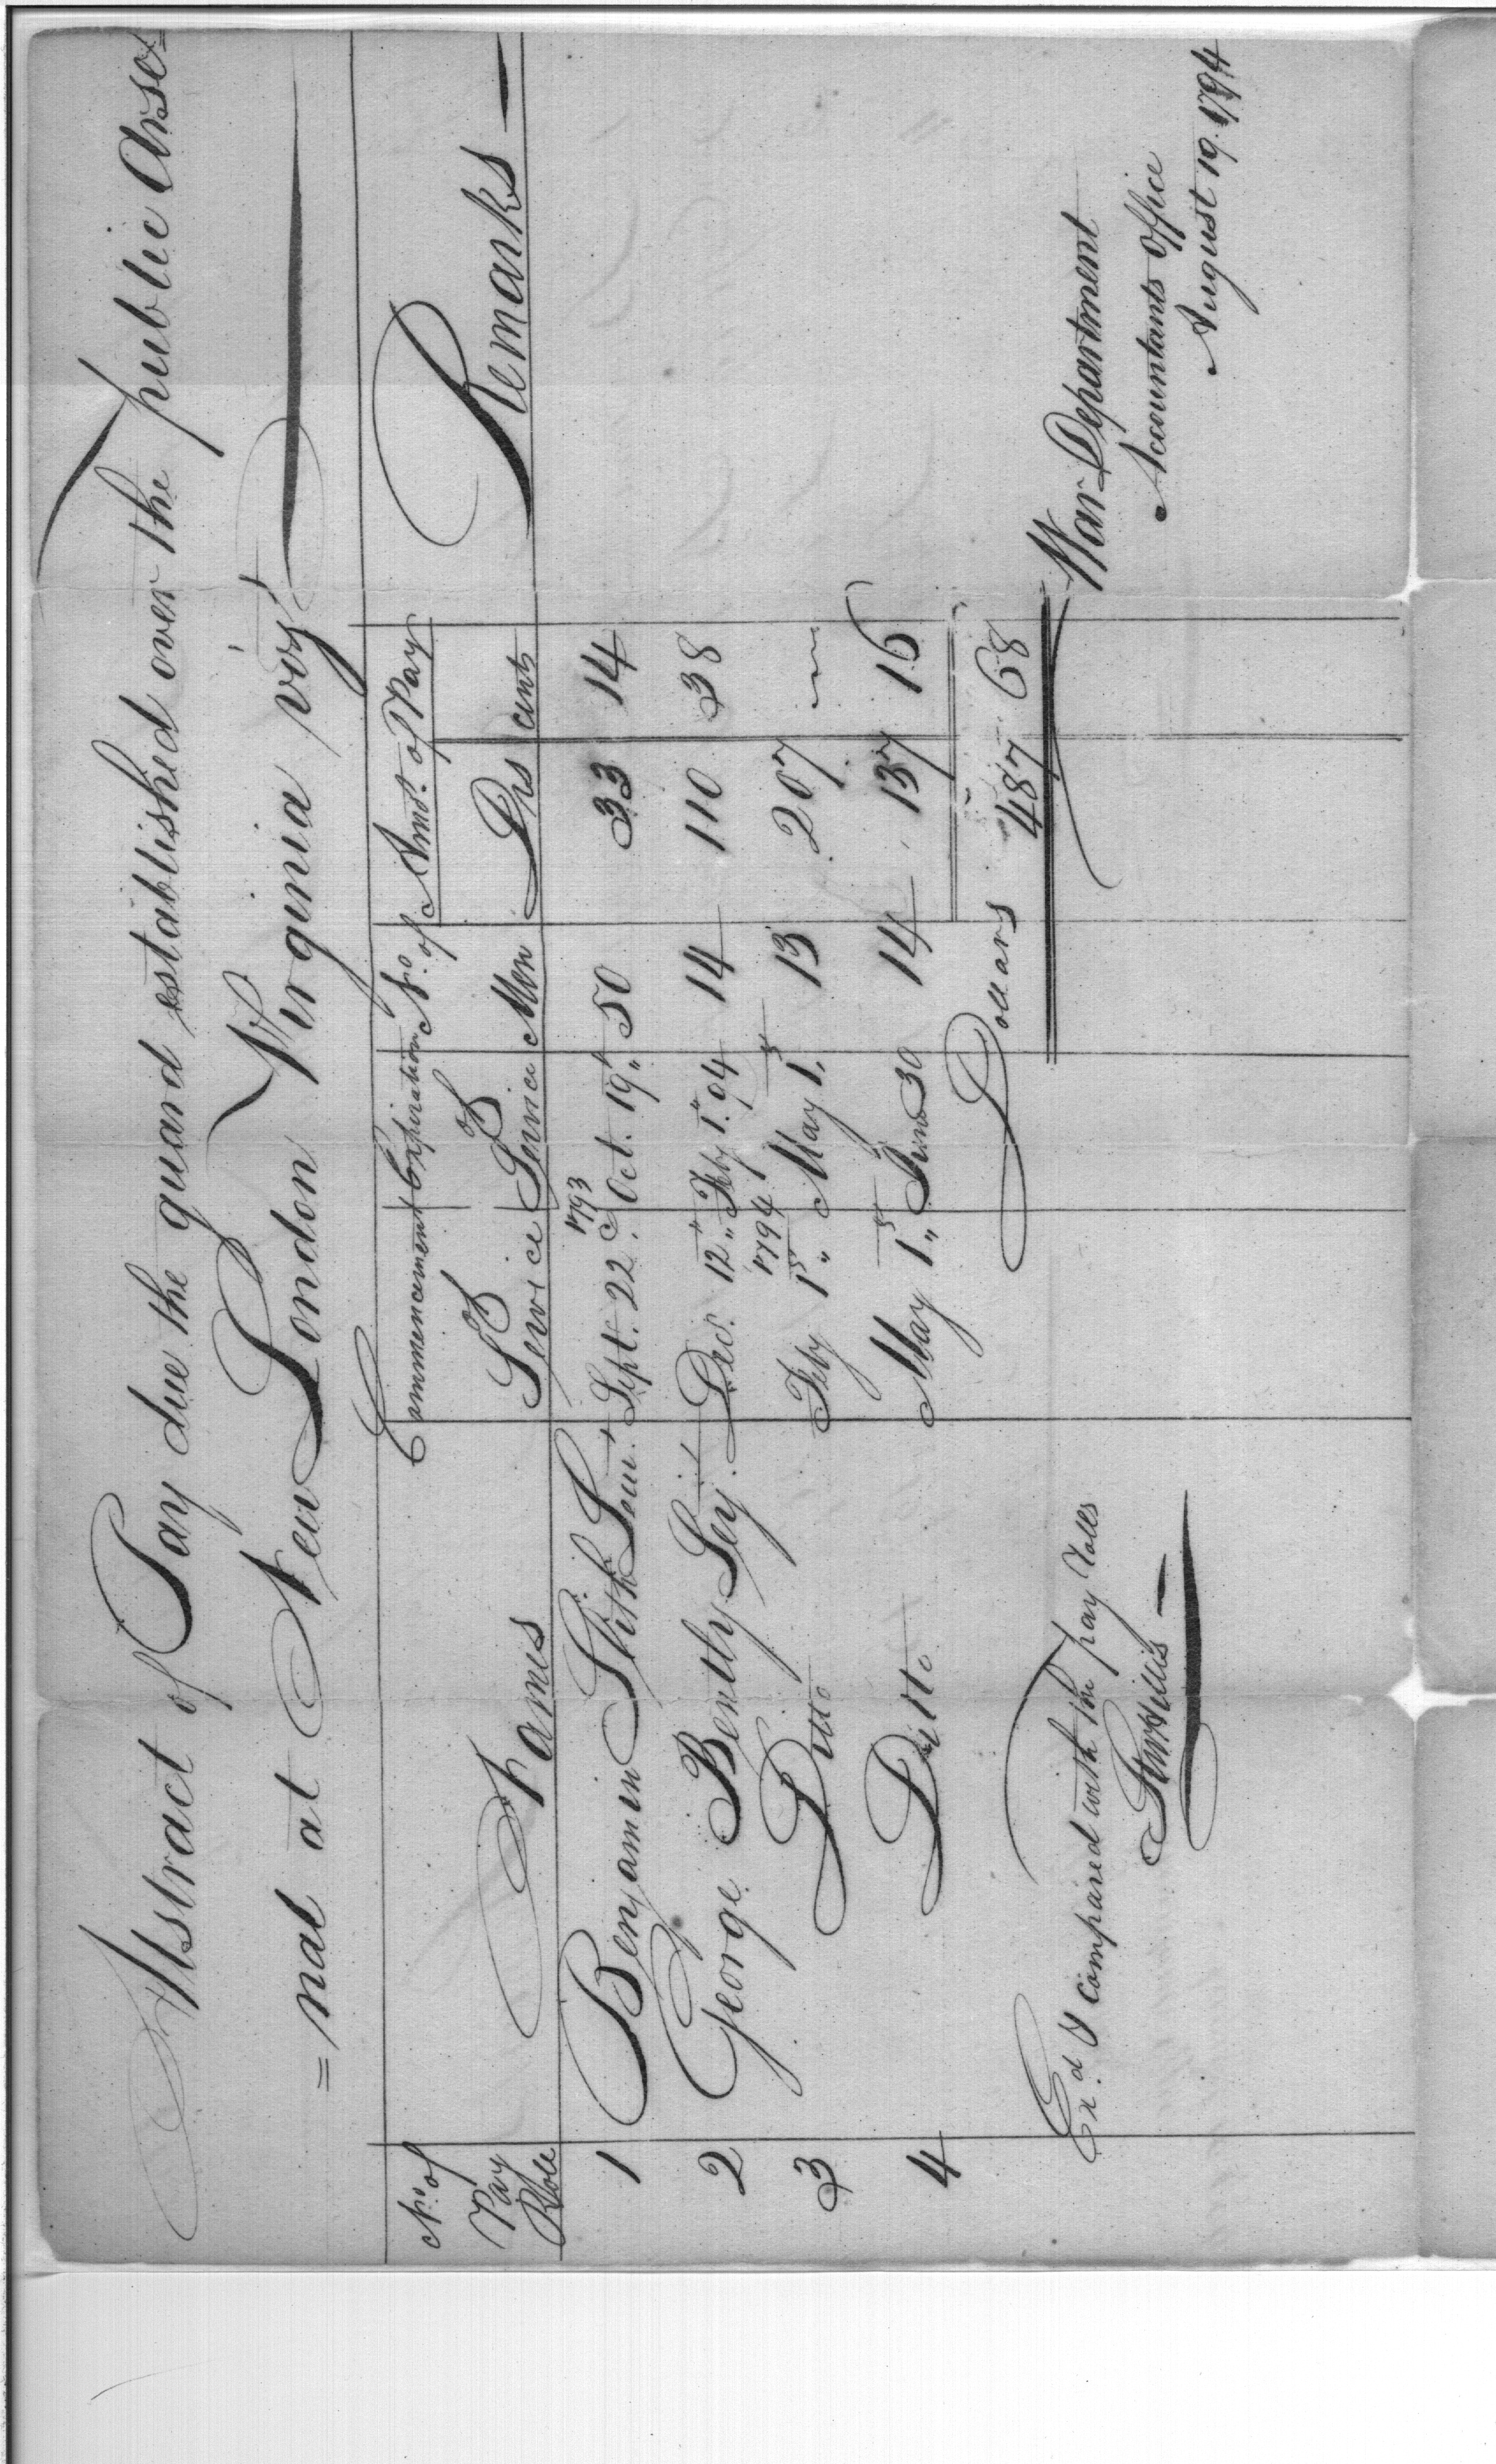 Abstract of Pay due the guard established over the public Arse=
=nal at New London Virginia vizt.
No. of Pay Role | Names | Commencement of Service | Expiration of Service | No. of Men | Amot. of Pay Drs cents | Remarks
1 Benjamin Stith Seur. Sept. 22d. 1793 Oct. 19th 50 33 14
2 George Bently Serj. Decr. 12th Feby 1st 94 14 110 38
3 Ditto Feby 1st 1794 May 1st 13 207 —
4 Ditto May 1st June 30 14 137 16
Dollars 487 68
Exd. & compared with the pay roles
War Department
Accountants Office
August 19. 1794